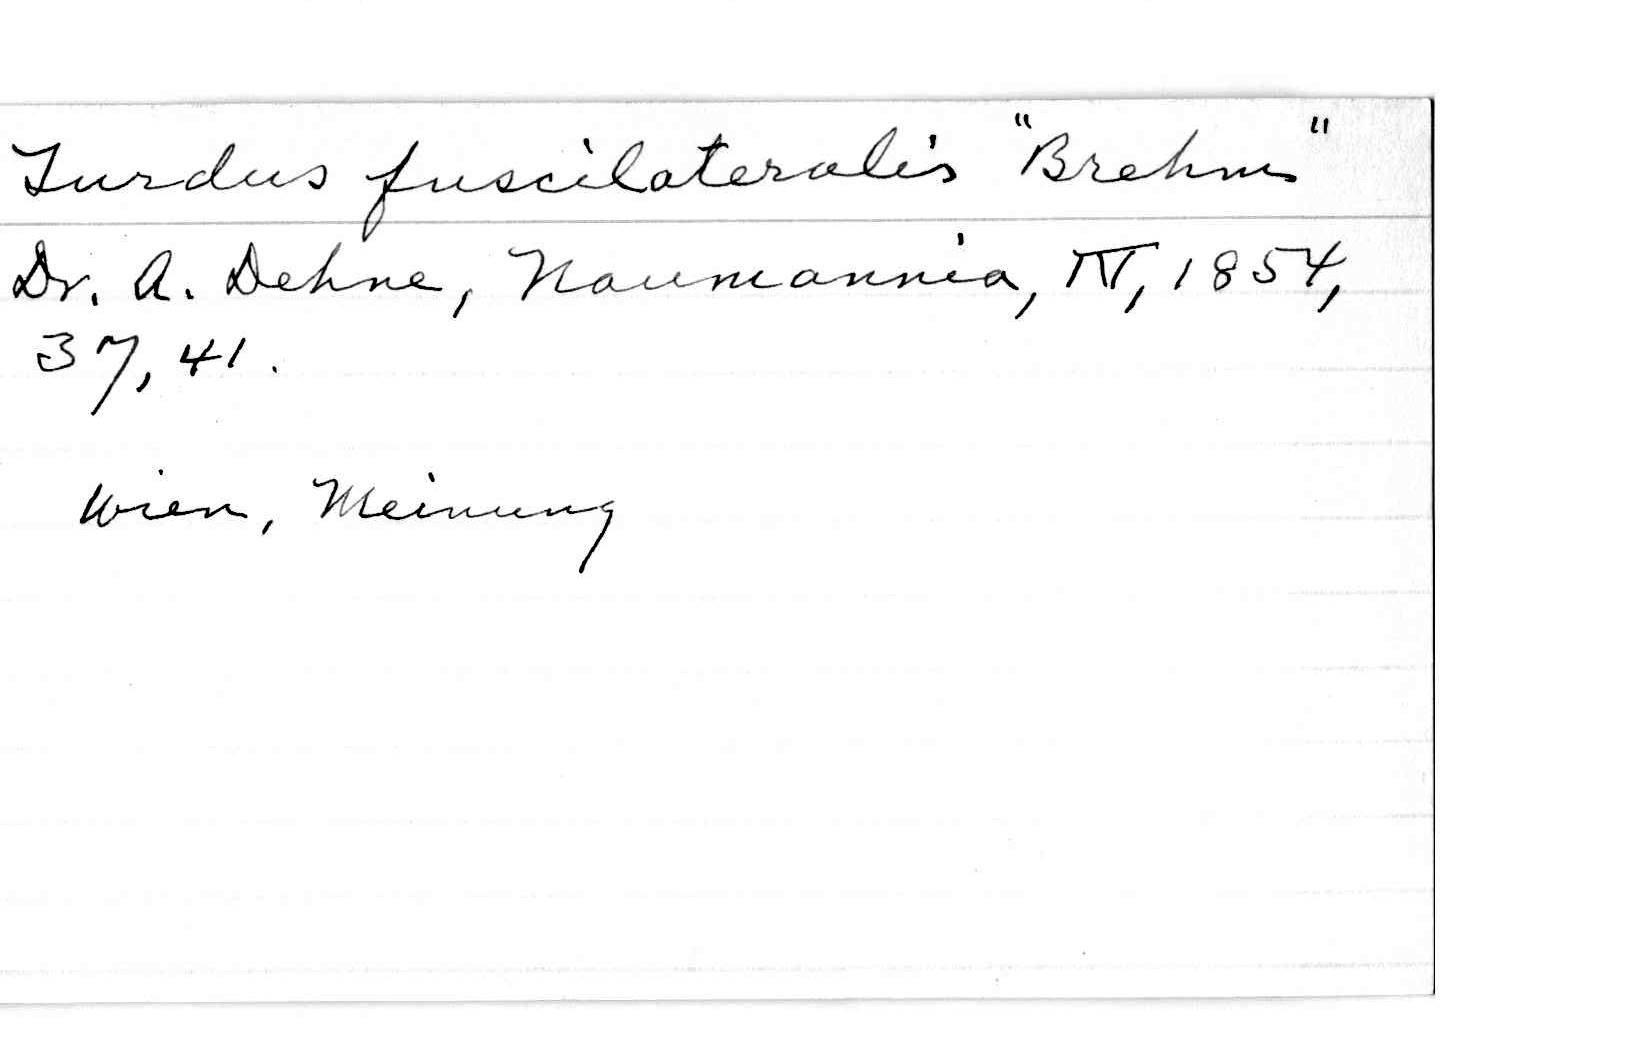 Turdus fuscilateralis "Brehm"
Dr. A. Dehne, Naumannia, IV, 1854,
37, 41.
Wien, Meinung